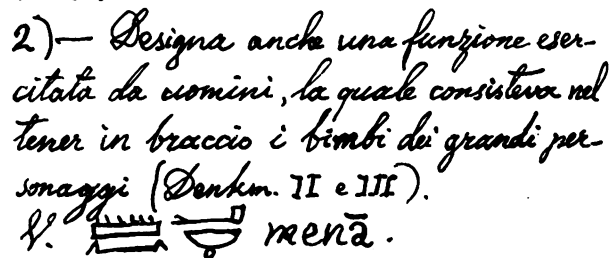 2)— Designa anche una funzione eser-
citata da uomini, la quale consisteva nel
tener in braccio i bimbi dei grandi per-
sonaggi (Denkm. II e III).
V. 𓏠𓂝 menā.